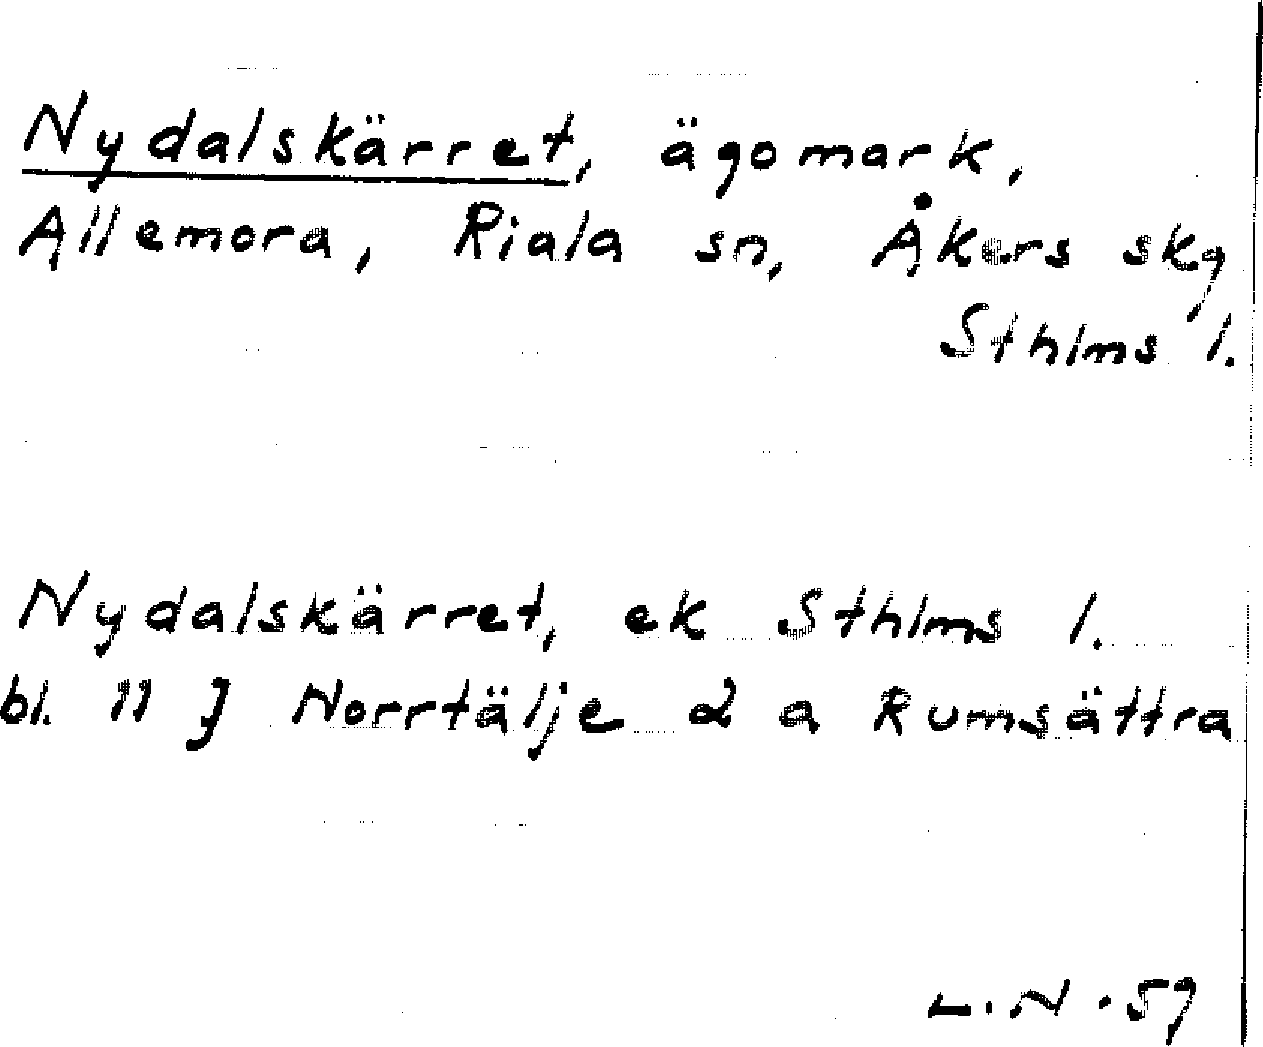 Nydalskärret, ägomark,
Allemora, Riala sn, Åkers skg
Sthlms l.
Nydalskärret, ek Sthlms l.
bl. 11 J Norrtälje 2 a Rumsättra
L.N.59